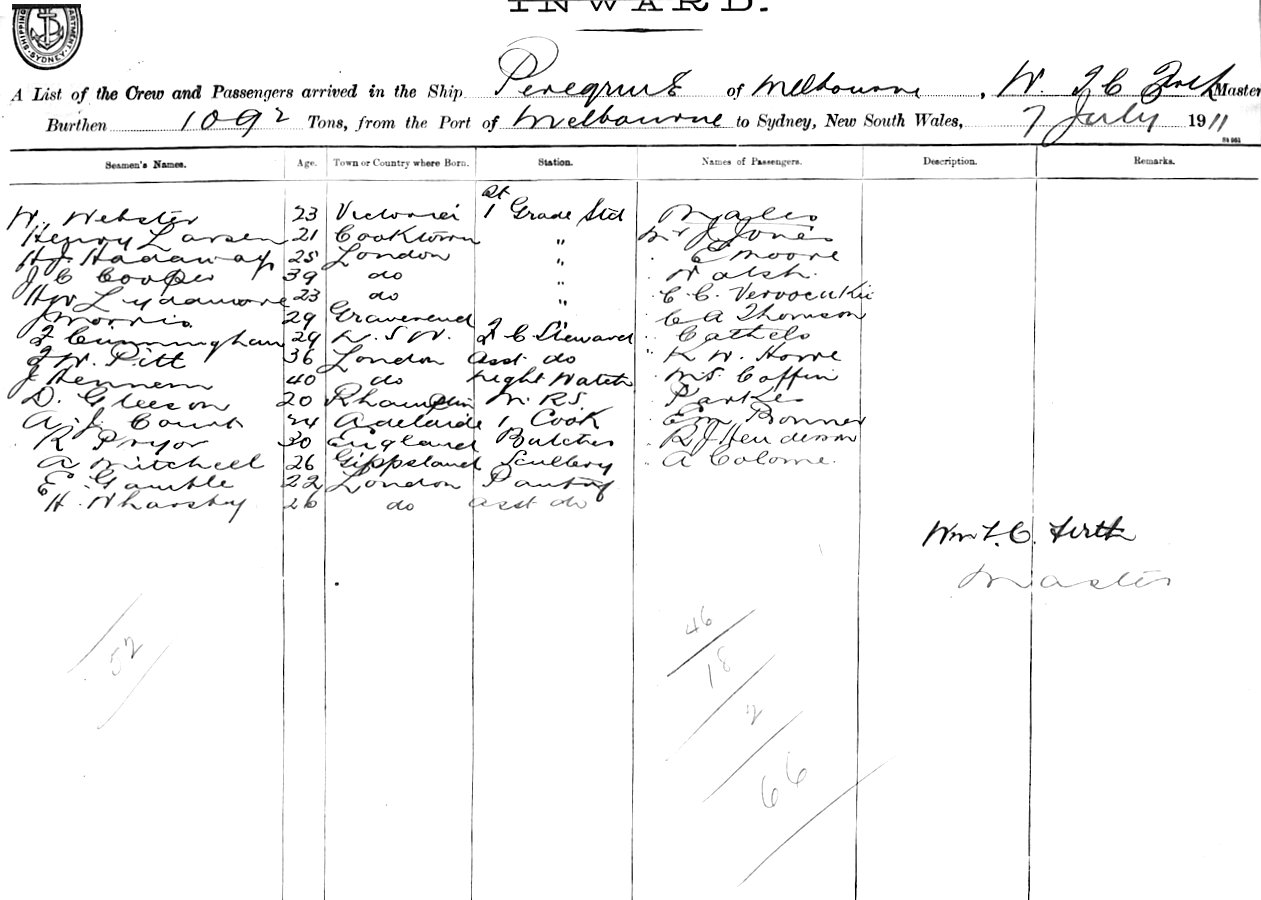 SHIPPING DEPARTMENT SYDNEY
INWARD.
A List of the Crew and Passengers arrived in the Ship Peregrine of Melbourne, W. F C Firth Master
Burthen 1092 Tons, from the Port of Melbourne to Sydney, New South Wales, 7 July 1911
Seamen's Names. Age. Town or Country where Born. Station. Names of Passengers. Description. Remarks.
W. Webster 23 Victoria 1st Grade Std
Henry Larsen 21 Cooktown " Mr J. Jones
H. J. Hadaway 25 London " E Moore
J C Cooper 39 do " Walsh
HW Lydamore 23 do " C. C.
J Morris 29 Gravesend C A Thomson
F Cunningham 29 N. S. W. F C Steward
F. W. Pitt 36 London asst do " K W. Howe
J Hennem 40 do Night Watch Coffin
D. Gleeson 20 Parkes
A. J. Court 24 Adelaide 1 Cook Em Bonner
R Pryor 30 England Butcher R J Henderson
A Mitchell 26 Gippsland Scullery A Colome.
E. Gamble 22 London Pantry
H. Wharsby 26 do asst do
Wm F. C. Firth
Master
52
46
18
2
66